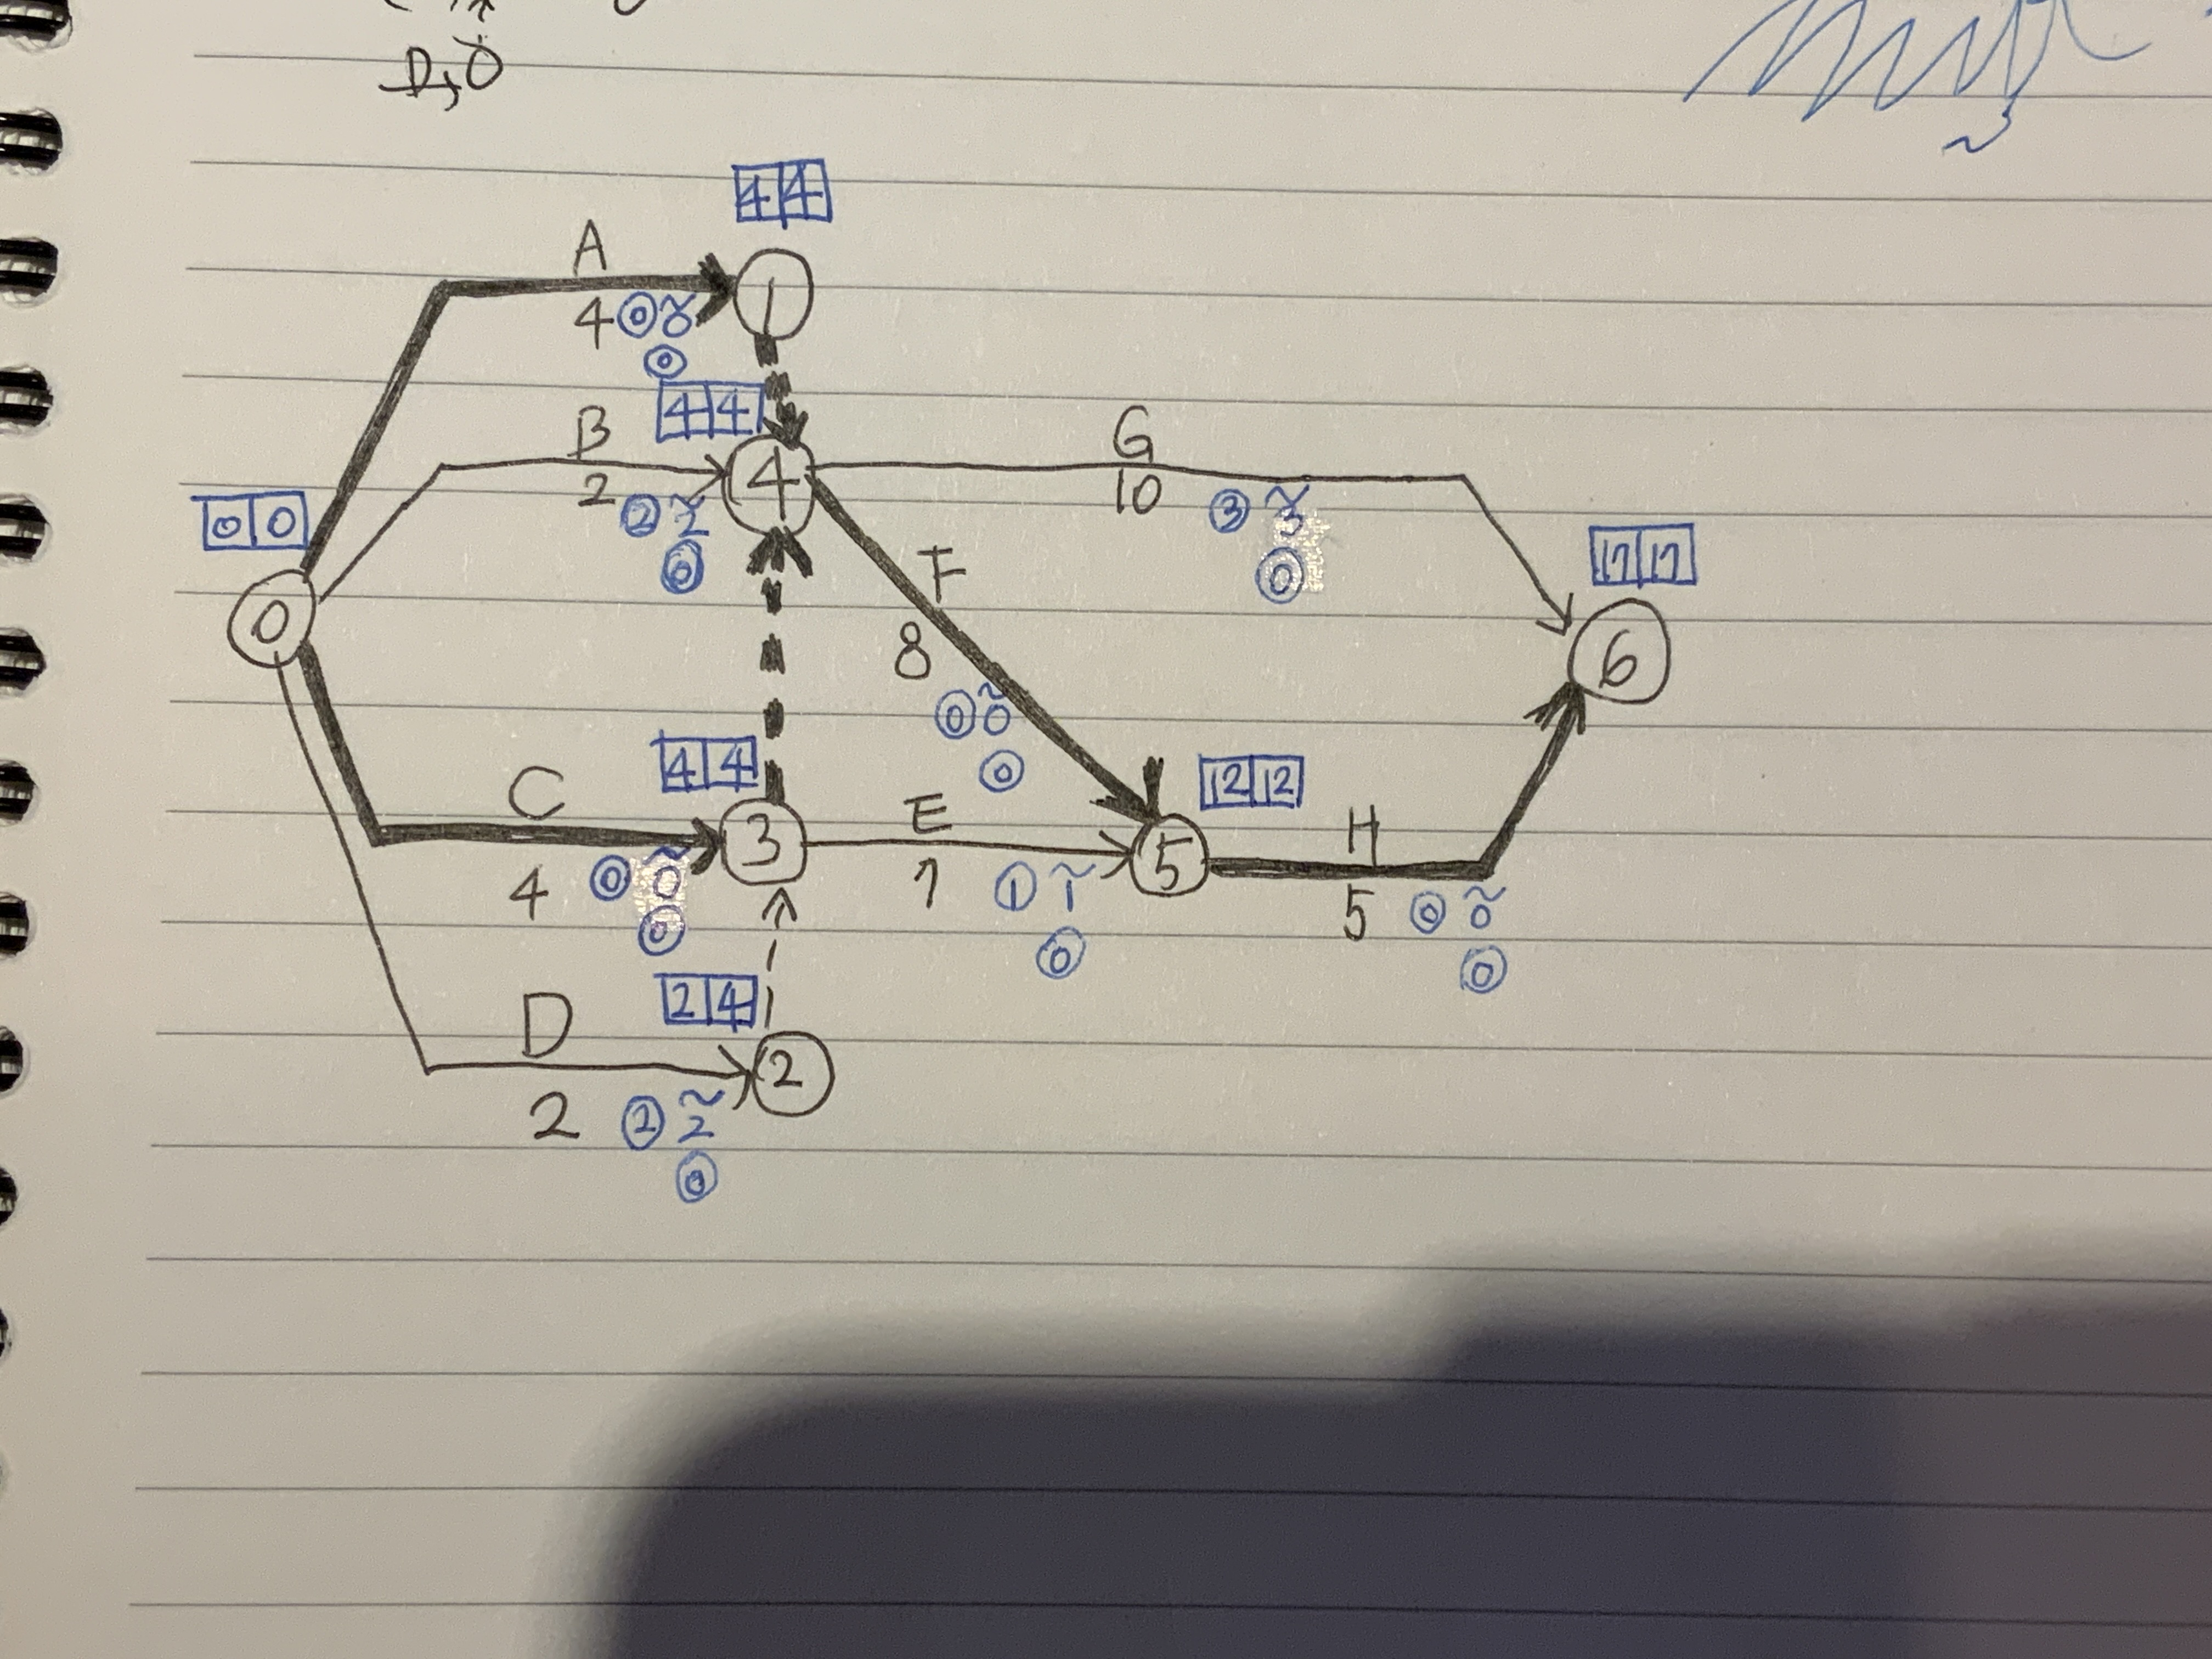 D,
4 4
A
1
4 0 0
0
4 4
B
4
G
2 2 2
10 3 3
0 0
0 0
0
F
8
17 17
6
0 0
0
4 4
12 12
C
3
E
5
H
4 0 0
7 1 1
5 0 0
0
0
0
2 4
D
2
2 2 2
0